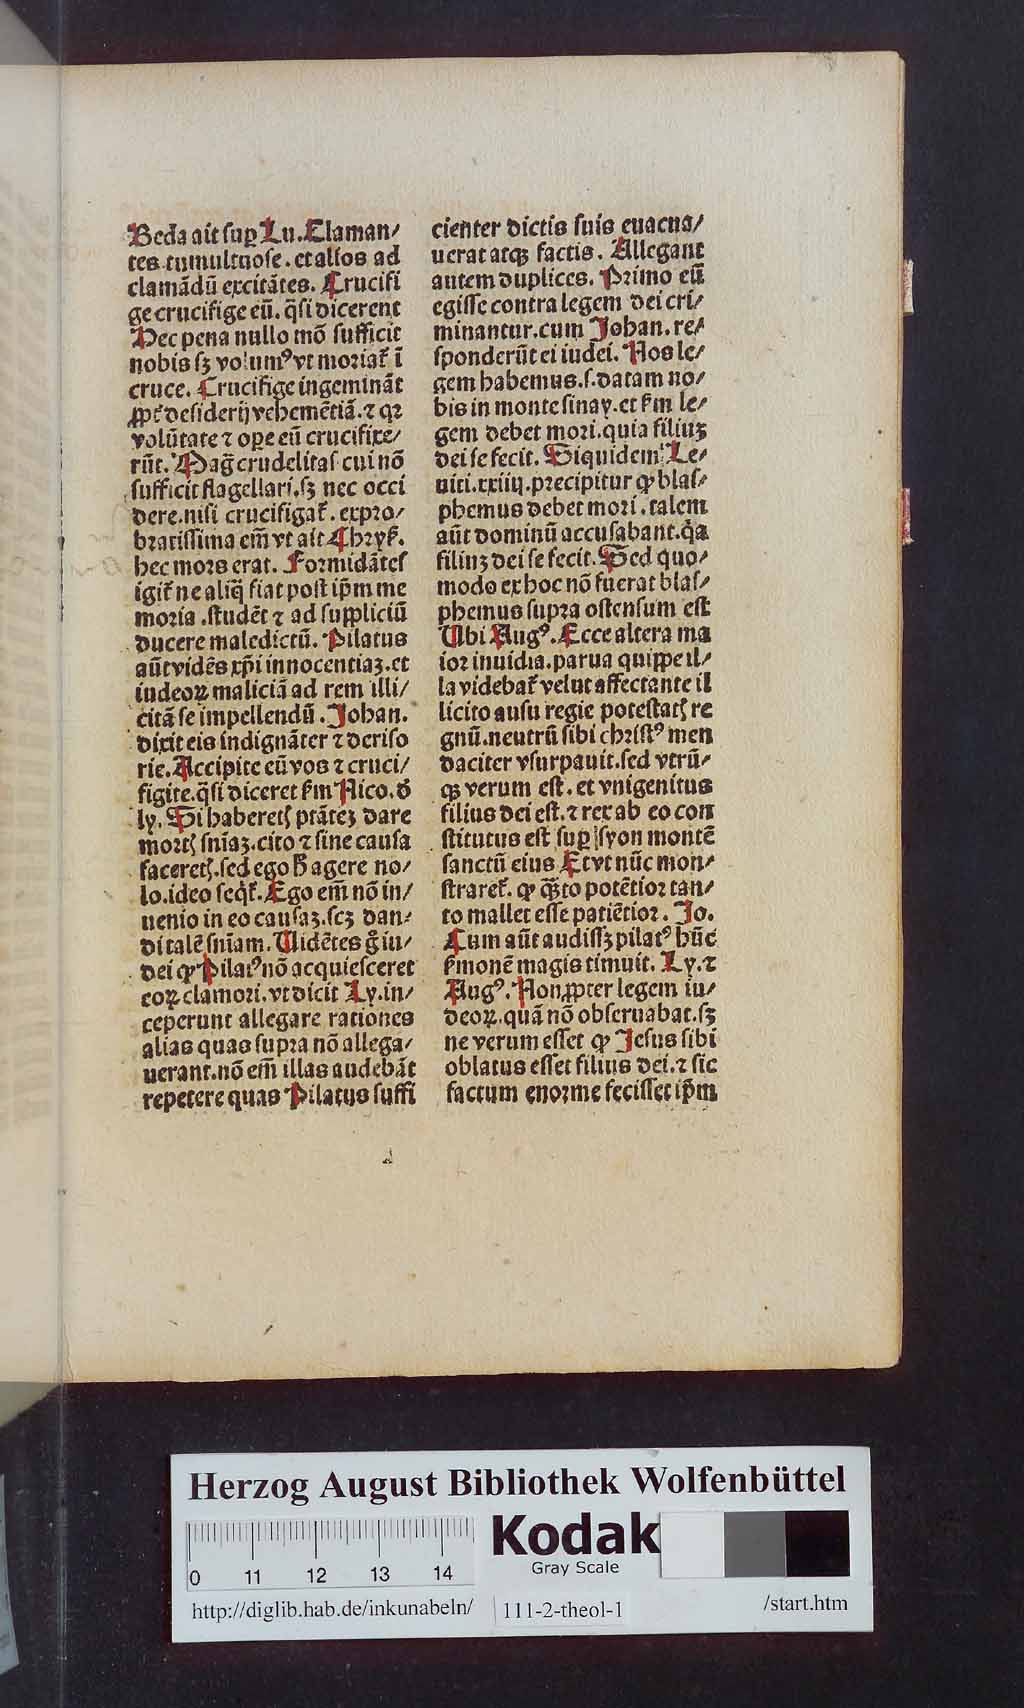 Beda ait suꝑ Lu. Claman/
tes tumultuose. et alios ad
clamādū excitātes. Crucifi
ge crucifige eū. q̄si dicerent
Hec pena nullo mō sufficit
nobis sꝫ volumꝰ vt moriat᷑ ī
cruce. Crucifige ingemināt
ꝓpt᷑ desiderij vehemētiā. ⁊ qꝛ
volūtate ⁊ oꝑe eū crucifixe/
rūt. Mag̃ crudelitas cui nō
sufficit flagellari. sꝫ nec occi
dere. nisi crucifigat᷑. expro/
bratissima em̄ vt ait Chrys᷑.
hec mors erat. Formidātes
igit᷑ ne aliq̄ fiat post ip̄m me
moria. studēt ⁊ ad suppliciū
ducere maledictū. Pilatus
aūt vidēs xp̄i innocentiaꝫ. et
iudeoꝝ maliciā ad rem illi/
citā se impellendū. Johan.
dixit eis indignāter ⁊ deriso
rie. Accipite eū vos ⁊ cruci/
figite. q̄si diceret s᷑m Nico. d̄
ly. Si haberetꝭ ptāteꝫ dare
mortꝭ sniāꝫ. cito ⁊ sine causa
faceretꝭ. sed ego h̄ agere no/
lo. ideo seqͥt᷑. Ego em̄ nō in/
uenio in eo causaꝫ. scꝫ dan/
di talē sniam. Uidētes gͦ iu/
dei ꝙ Pilatꝰ nō acquiesceret
eoꝝ clamori. vt dicit Ly. in/
ceperunt allegare rationes
alias quas supra nō allega/
uerant. nō em̄ illas audebāt
repetere quas Pilatus suffi
cienter dictis suis euacua/
uerat atqꝫ factis. Allegant
autem duplices. Primo eū
egisse contra legem dei cri/
minantur. cum Johan. re/
sponderūt ei iudei. Nos le/
gem habemus. s. datam no/
bis in monte sinay. et s᷑m le/
gem debet mori. quia filiuꝫ
dei se fecit. Siquidem Le/
uiti. xxiiij. precipitur ꝙ blas/
phemus debet mori. talem
aūt dominū accusabant. qͣa
filiuꝫ dei se fecit. Sed quo/
modo ex hoc nō fuerat blas/
phemus supra ostensum est
Ubi Augꝰ. Ecce altera ma
ior inuidia. parua quippe il/
la videbat᷑ velut affectante il
licito ausu regie potestatꝭ re
gnū. neutrū sibi christꝰ men
daciter vsurpauit. sed vtrū/
qꝫ verum est. et vnigenitus
filius dei est. ⁊ rex ab eo con
stitutus est suꝑ syon montē
sanctū eius Et vt nūc mon/
straret᷑. ꝙ qͣ̄to potētior tan/
to mallet esse patiētior. Jo.
Cum aūt audissꝫ pilatꝰ hūc
s᷑monē magis timuit. Ly. ⁊
Augꝰ. Non ꝓpter legem iu/
deoꝝ. quā nō obseruabat. sꝫ
ne verum esset ꝙ Jesus sibi
oblatus esset filius dei. ⁊ sic
factum enorme fecisset ip̄m
Herzog August Bibliothek Wolfenbüttel
0 11 12 13 14
Kodak
Gray Scale
http://diglib.hab.de/inkunabeln/ 111-2-theol-1 /start.htm